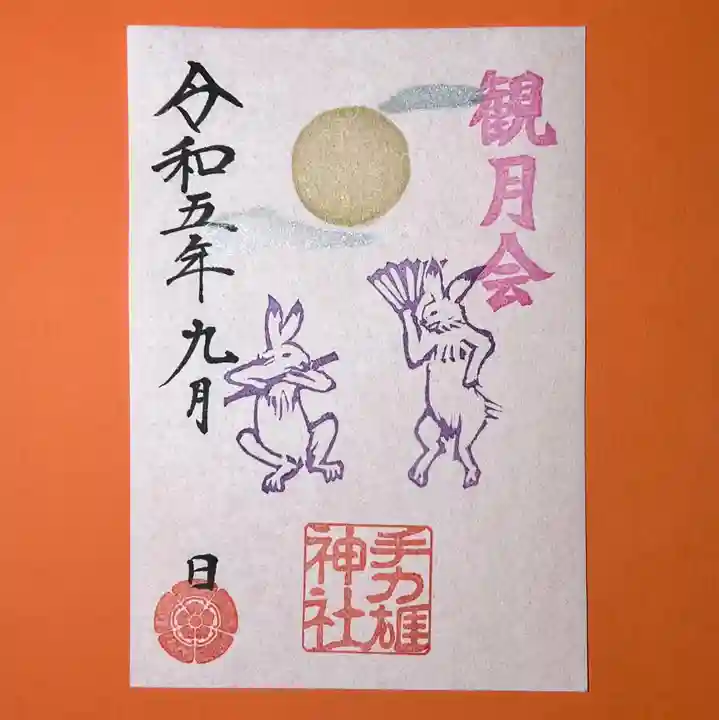 観月会
手力雄
神社
令和五年九月
日